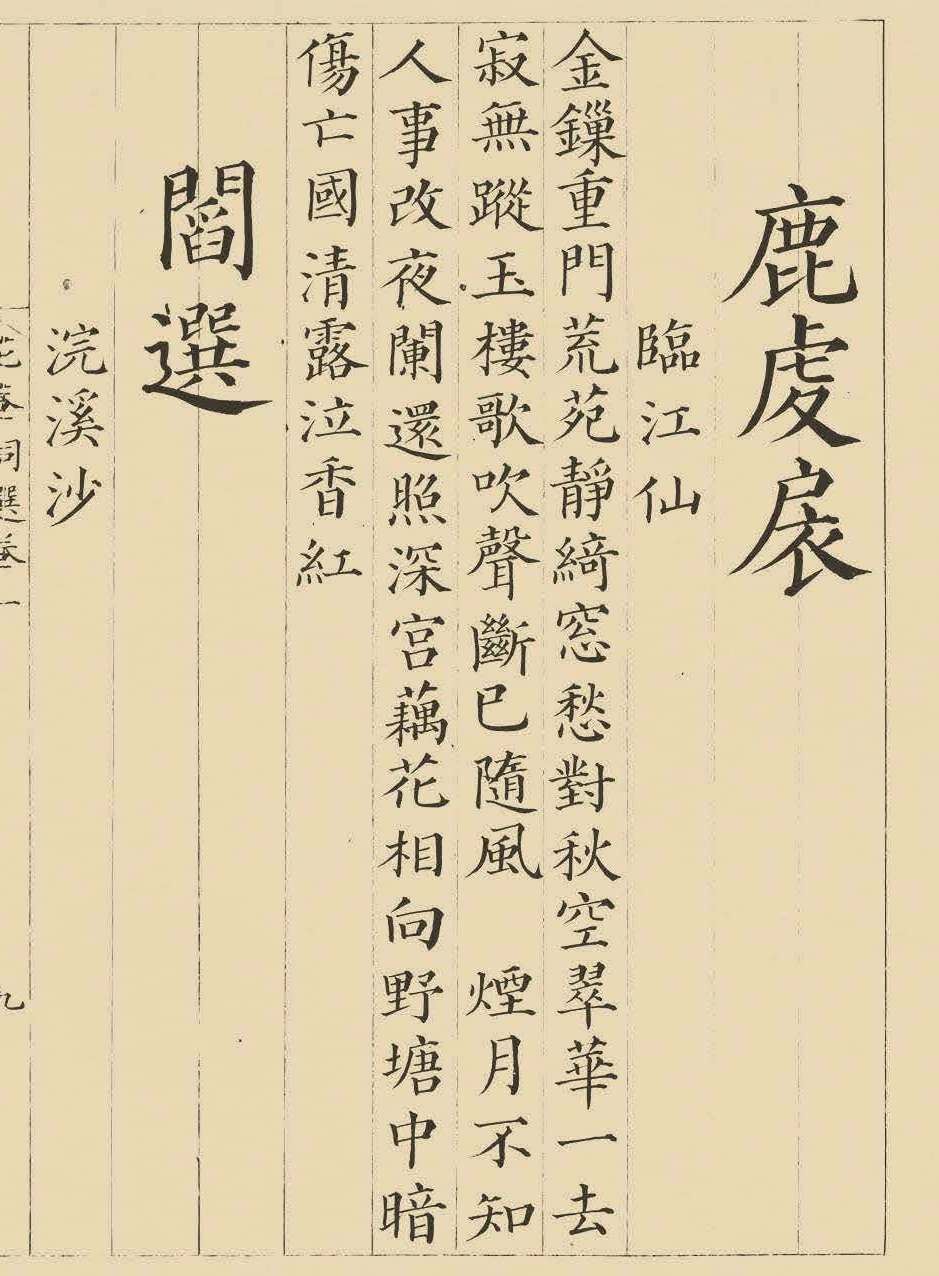 鹿虔扆
臨江仙
金鏁重門荒苑靜綺窓愁對秋空翠華一去
寂無蹤玉樓歌吹聲斷已隨風　煙月不知
人事改夜闌還照深宮藕花相向野塘中暗
傷亡國清露泣香紅
閻選
浣溪沙